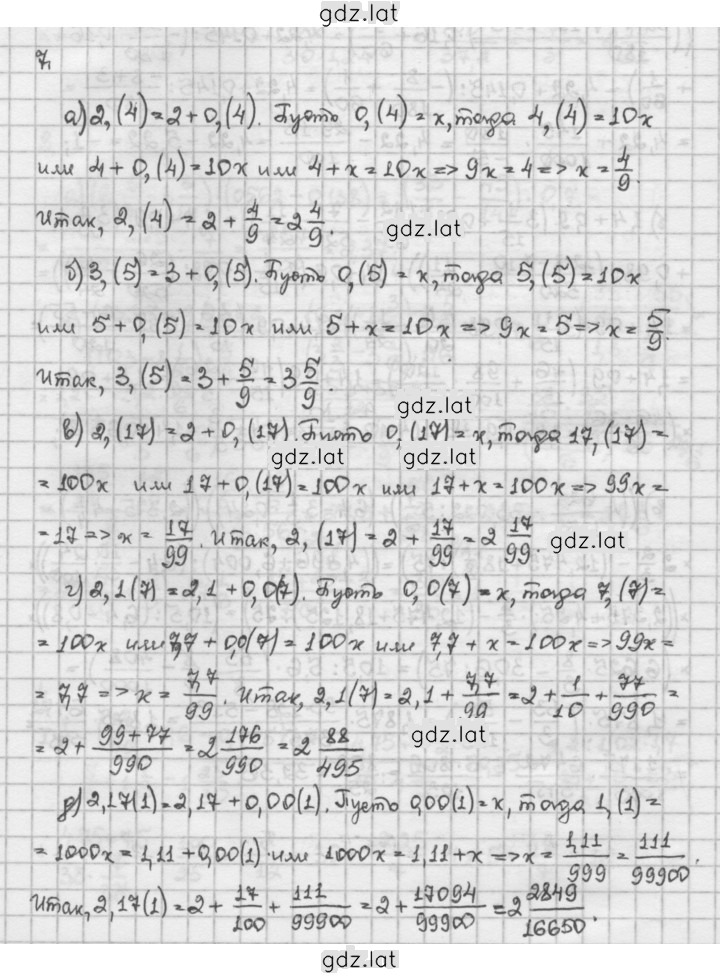 gdz.lat
7.
а) 2,(4) = 2 + 0,(4). Пусть 0,(4) = x, тогда 4,(4) = 10x
или 4 + 0,(4) = 10x или 4 + x = 10x => 9x = 4 => x = 4/9.
Итак, 2,(4) = 2 + 4/9 = 2 4/9.
gdz.lat
б) 3,(5) = 3 + 0,(5). Пусть 0,(5) = x, тогда 5,(5) = 10x
или 5 + 0,(5) = 10x или 5 + x = 10x => 9x = 5 => x = 5/9.
Итак, 3,(5) = 3 + 5/9 = 3 5/9.
gdz.lat
в) 2,(17) = 2 + 0,(17). Пусть 0,(17) = x, тогда 17,(17) =
gdz.lat gdz.lat
= 100x или 17 + 0,(17) = 100x или 17 + x = 100x => 99x =
= 17 => x = 17/99. Итак, 2,(17) = 2 + 17/99 = 2 17/99.
gdz.lat
г) 2,1(7) = 2,1 + 0,0(7). Пусть 0,0(7) = x, тогда 7,(7) =
= 100x или 7,7 + 0,0(7) = 100x или 7,7 + x = 100x => 99x =
= 7,7 => x = 7,7/99. Итак, 2,1(7) = 2,1 + 7,7/99 = 2 + 1/10 + 77/990 =
= 2 + 99+77/990 = 2 176/990 = 2 88/495
gdz.lat
д) 2,17(1) = 2,17 + 0,00(1). Пусть 0,00(1) = x, тогда 1,(1) =
= 1000x = 1,11 + 0,00(1) или 1000x = 1,11 + x => x = 1,11/999 = 111/99900.
Итак, 2,17(1) = 2 + 17/100 + 111/99900 = 2 + 17094/99900 = 2 2849/16650.
gdz.lat